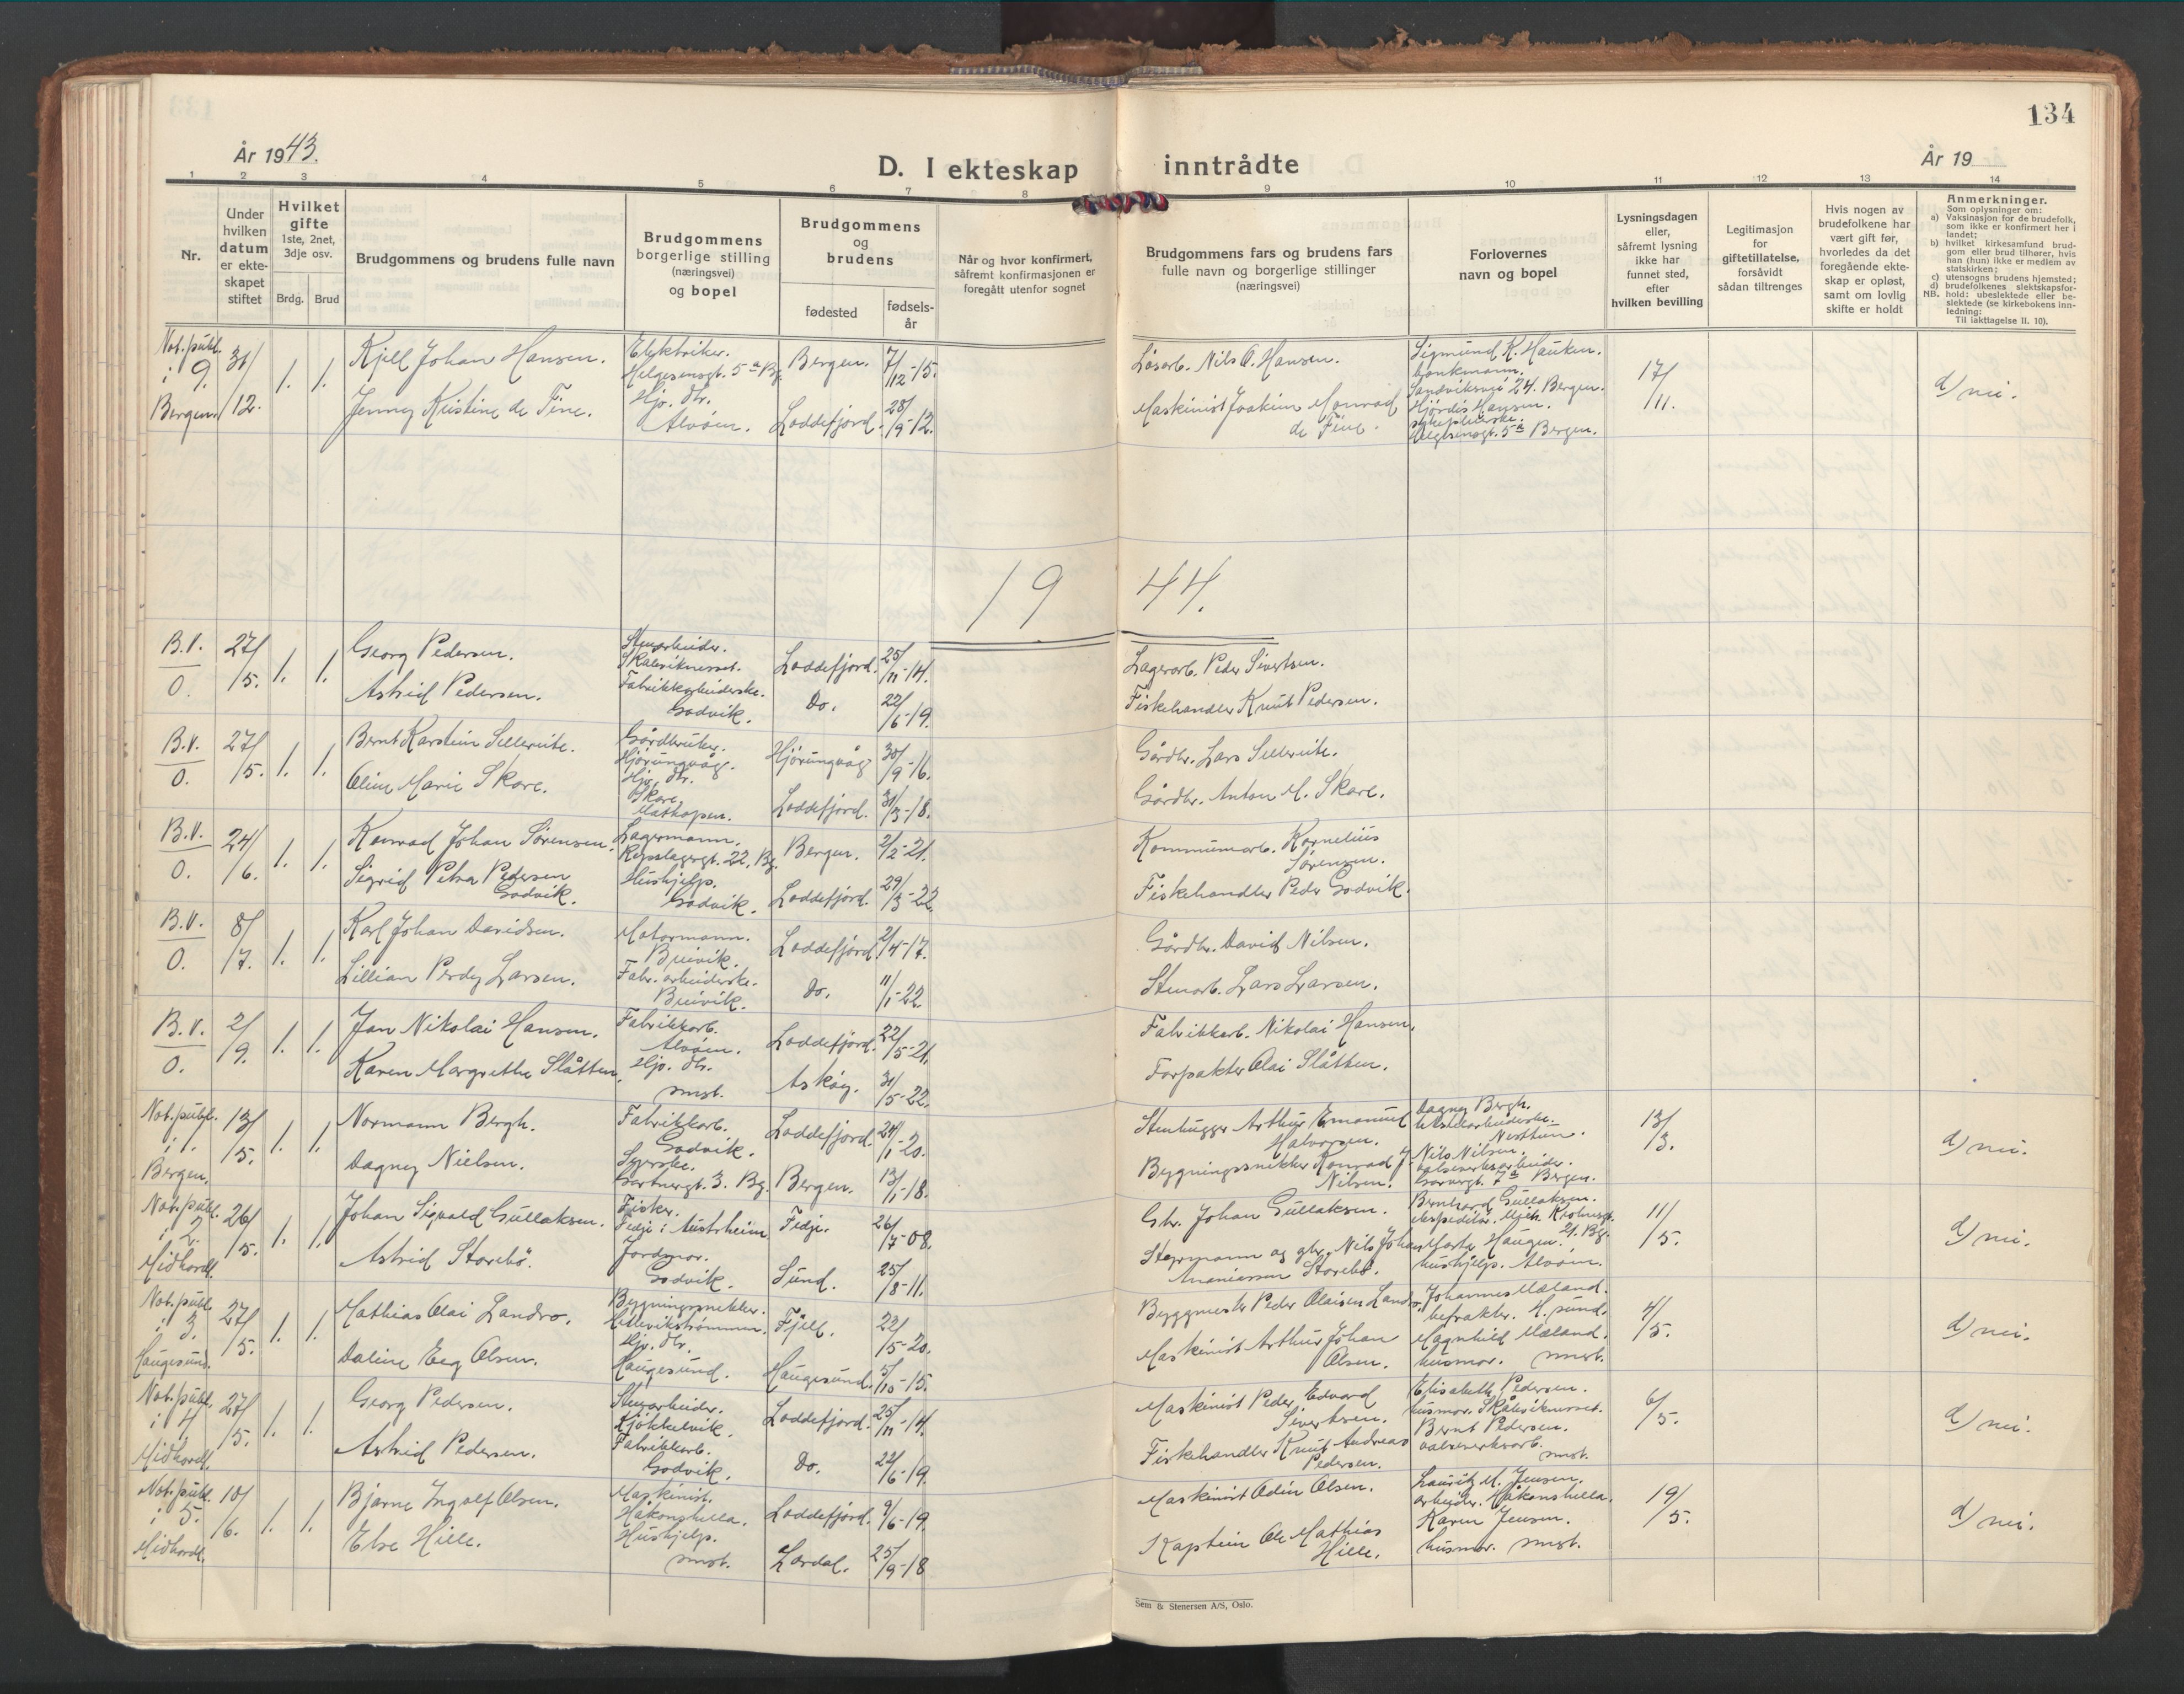 134
År 1943.
År 19
D. I ekteskap inntrådte
1 2 3 4 5 6 7 8 9 10 11 12 13 14
Nr.
Under hvilken datum er ekteskapet stiftet
Hvilket gifte
1ste, 2net, 3dje osv.
Brdg. Brud
Brudgommens og brudens fulle navn
Brudgommens borgerlige stilling (næringsvei) og bopel
Brudgommens og brudens
fødested
fødsels-år
Når og hvor konfirmert, såfremt konfirmasjonen er foregått utenfor sognet
Brudgommens fars og brudens fars fulle navn og borgerlige stillinger (næringsvei)
Forlovernes navn og bopel
Lysningsdagen eller, såfremt lysning ikke har funnet sted, efter hvilken bevilling
Legitimasjon for giftetillatelse, forsåvidt sådan tiltrenges
Hvis nogen av brudefolkene har vært gift før, hvorledes da det foregående ekteskap er opløst, samt om lovlig skifte er holdt
Anmerkninger.
Som oplysninger om:
a) Vaksinasjon for de brudefolk, som ikke er konfirmert her i landet;
b) hvilket kirkesamfund brudgom eller brud tilhører, hvis han (hun) ikke er medlem av statskirken;
c) utensogns brudens hjemsted;
d) brudefolkenes slektskapsforhold: ubeslektede eller beslektede (se kirkebokens innledning:
NB.
Til iakttagelse II. 10).
Not. publ. i 9. Bergen. 31/12. 1. 1.
Kjell Johan Hansen. Elektriker. Helgesensgt. 5 a Bg. Bergen. 7/12-15.
Jenny Kristine de Fine. Hjv. dtr. Alvøen. Loddefjord. 28/9-12.
Løsarb. Nils O. Hansen.
Maskinist Joakim Monrad de Fine.
Sigmund K. Hauken. bankmann. Sandviksvei 24. Bergen.
Hjördis Hansen. sykepleierske. Helgesensgt. 5 a Bergen.
17/11. d) nei.
1944.
B.V. 0. 27/5. 1. 1.
Georg Pedersen. Stenarbeider. Skåleviknesset. Loddefjord. 25/11-14.
Astrid Pedersen. Fabrikkarbeiderske. Godvik. Do. 22/6-19.
Lagerarb. Peder Sivertsen.
Fiskehandler Knut Pedersen.
B.V. 0. 27/5. 1. 1.
Bernt Karstein Sellereite. Gårdbruker. Hjørungvåg. Hjørungvåg 30/9-16.
Oline Marie Skare. Hjv. dtr. Skare, Mathopen. Loddefjord. 31/3-18.
Gårdbr. Lars Sellereite.
Gårdbr. Anton M. Skare.
B.V. 0. 24/6. 1. 1.
Konrad Johan Sørensen. Lagermann. Repslagergt. 22. Bg. Bergen. 2/2-21.
Sigrid Petra Pedersen Godvik. Hushjelp. Godvik. Loddefjord. 29/3-22.
Kommunearb. Kornelius Sørensen.
Fiskehandler Peder Godvik.
B.V. 0. 8/7. 1. 1.
Karl Johan Davidsen. Motormann. Breivik. Loddefjord 2/4-17.
Lillian Perdy Larsen. Fabr. arbeiderske. Breivik. Do. 11/1-22.
Gårdbr. David Nilsen.
Stenarb. Lars Larsen.
B.V. 0. 2/9. 1. 1.
Jan Nikolai Hansen. Fabrikkarb. Alvøen. Loddefjord. 22/5-21.
Karen Margrethe Slåtten. Hjv. dtr. smst. Askøy. 31/5-22.
Fabrikkarb. Nikolai Hansen.
Forpakter Olai Slåtten.
Not. publ. i 1. Bergen. 13/5. 1. 1.
Normann Bergh. Fabrikkarb. Godvik. Loddefjord. 24/1-20.
Dagney Nielsen. Syerske. Gartnergt. 3. Bg. Bergen. 13/1-18.
Stenhugger Arthur Emanuel Halvorsen.
Bygningssnekker Konrad J. Nilsen.
Dagny Bergh. Nesttun.
Nils Nilsen. valseverksarbeider. 7 a Bergen.
13/3. d) nei.
Not. publ. i 2. Midhordl. 26/5. 1. 1.
Johan Sigvald Gullaksen. Fisker. Fedje i Austrheim Fedje. 26/7-08.
Astrid Storebø. Jordmor. Godvik. Sund. 25/8-11.
Gbr. Johan Gullaksen.
Styrmann og gbr. Nils Johan Ananiassen Storebø.
Bernhard Gullaksen. ekspeditør. Mich. Krohnsgt. 21. Bg.
Marta Haugen. hushjelp. Alvøen.
11/5. d) nei.
Not. publ. i 3. Haugesund. 27/5. 1. 1.
Mathias Olai Landro. Bygningssnekker. Fjell. 22/5-20.
Daline Eeg Olsen. Hjv. dtr. Haugesund. Haugesund. 5/10-15.
Byggmester Peder Olaisen Landro.
Maskinist Arthur Johan Olsen.
Johannes Mæland. befrakter. H.sund.
Magnhild Mæland. husmor. smst.
4/5. d) nei.
Not. publ. i 4. Midhordl. 27/5. 1. 1.
Georg Pedersen. Stenarbeider. Kjøkkelvik. Loddefjord. 25/11-14.
Astrid Pedersen. Fabrikkarb. Godvik. Do. 22/6-19.
Maskinist Peder Edvard Sivertsen.
Fiskehandler Knut Andreas Pedersen.
Elisabeth Pedersen. husmor. Skåleviknesset.
Bernt Pedersen. valseverksarb. smst.
6/5. d) nei.
Not. publ. i 5. Midhordl. 10/6. 1. 1.
Bjarne Ingolf Olsen. Maskinist. Håkonshella. Loddefjord. 9/6-19.
Else Hille. Hushjelp. smst. Lærdal. 25/9-18
Maskinist Odin Olsen.
Kaptein Ole Mathias Hille.
Lauritz M. Jensen. arbeider. Håkonshella.
Karen Jensen. husmor. smst.
19/5. d) nei.
Sem & Stenersen A/S, Oslo.